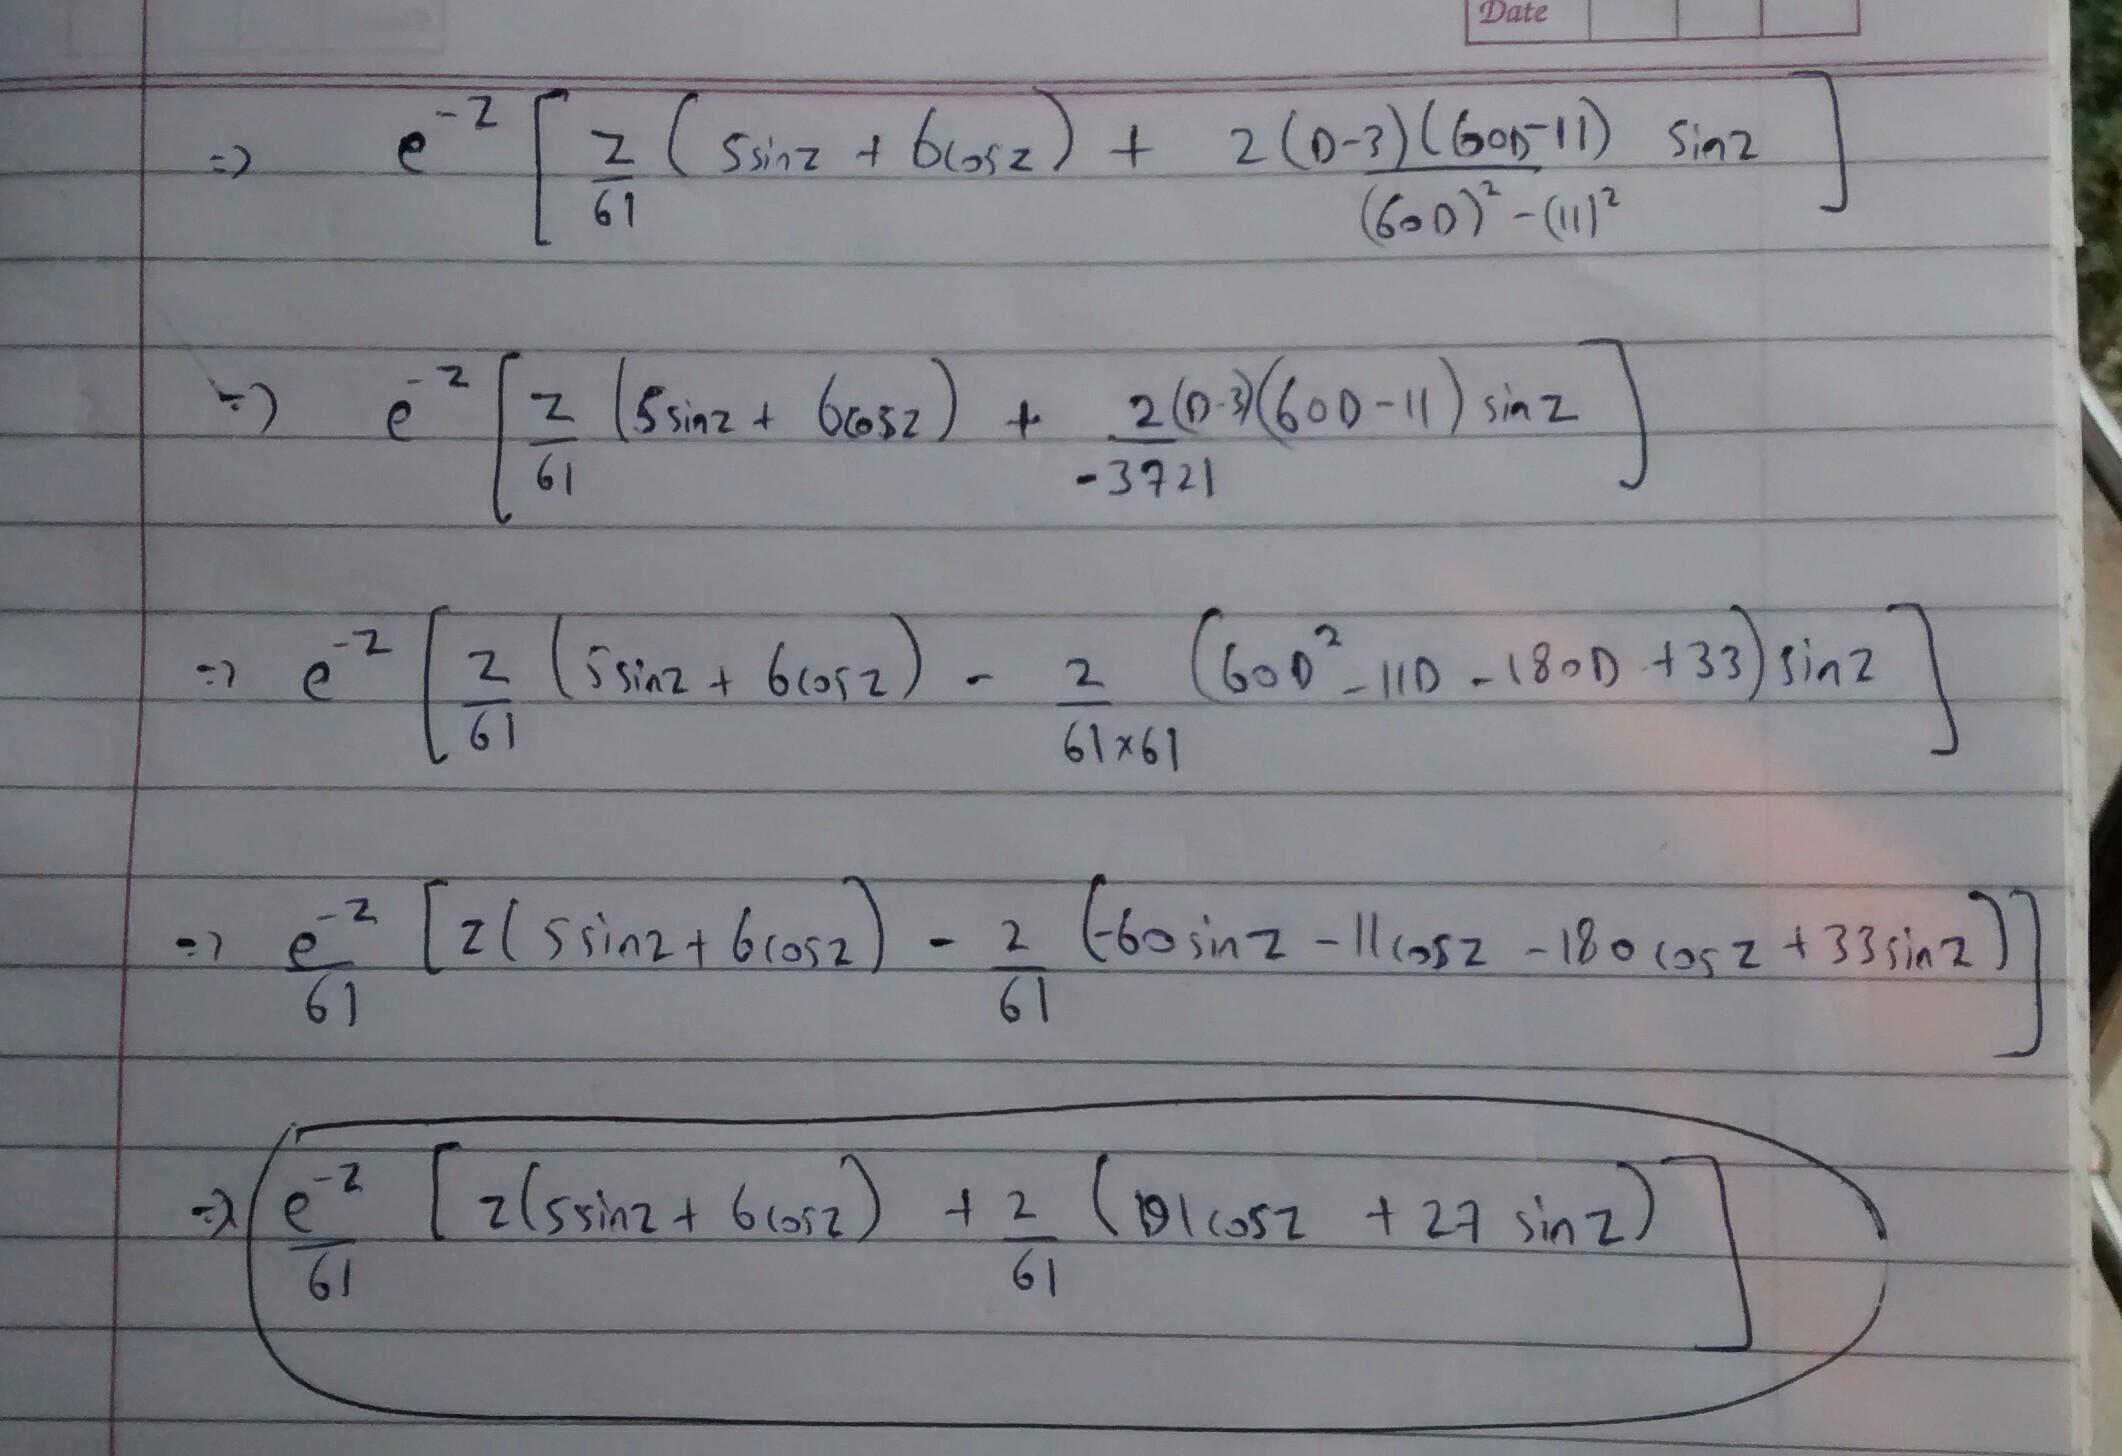 Date
=> e^{-z} [ z/61 (5sinz + 6cosz) + 2(D-3)(60D-11)/((60D)² - (11)²) sinz ]
=> e^{-z} [ z/61 (5sinz + 6cosz) + 2(D-3)(60D-11) sinz/-3721 ]
=> e^{-z} [ z/61 (5sinz + 6cosz) - 2/(61×61) (60D² - 11D - 180D + 33) sinz ]
=> e^{-z}/61 [ z(5sinz + 6cosz) - 2/61 (-60sinz - 11cosz - 180cosz + 33sinz) ]
=> e^{-z}/61 [ z(5sinz + 6cosz) + 2/61 (191cosz + 27sinz) ]